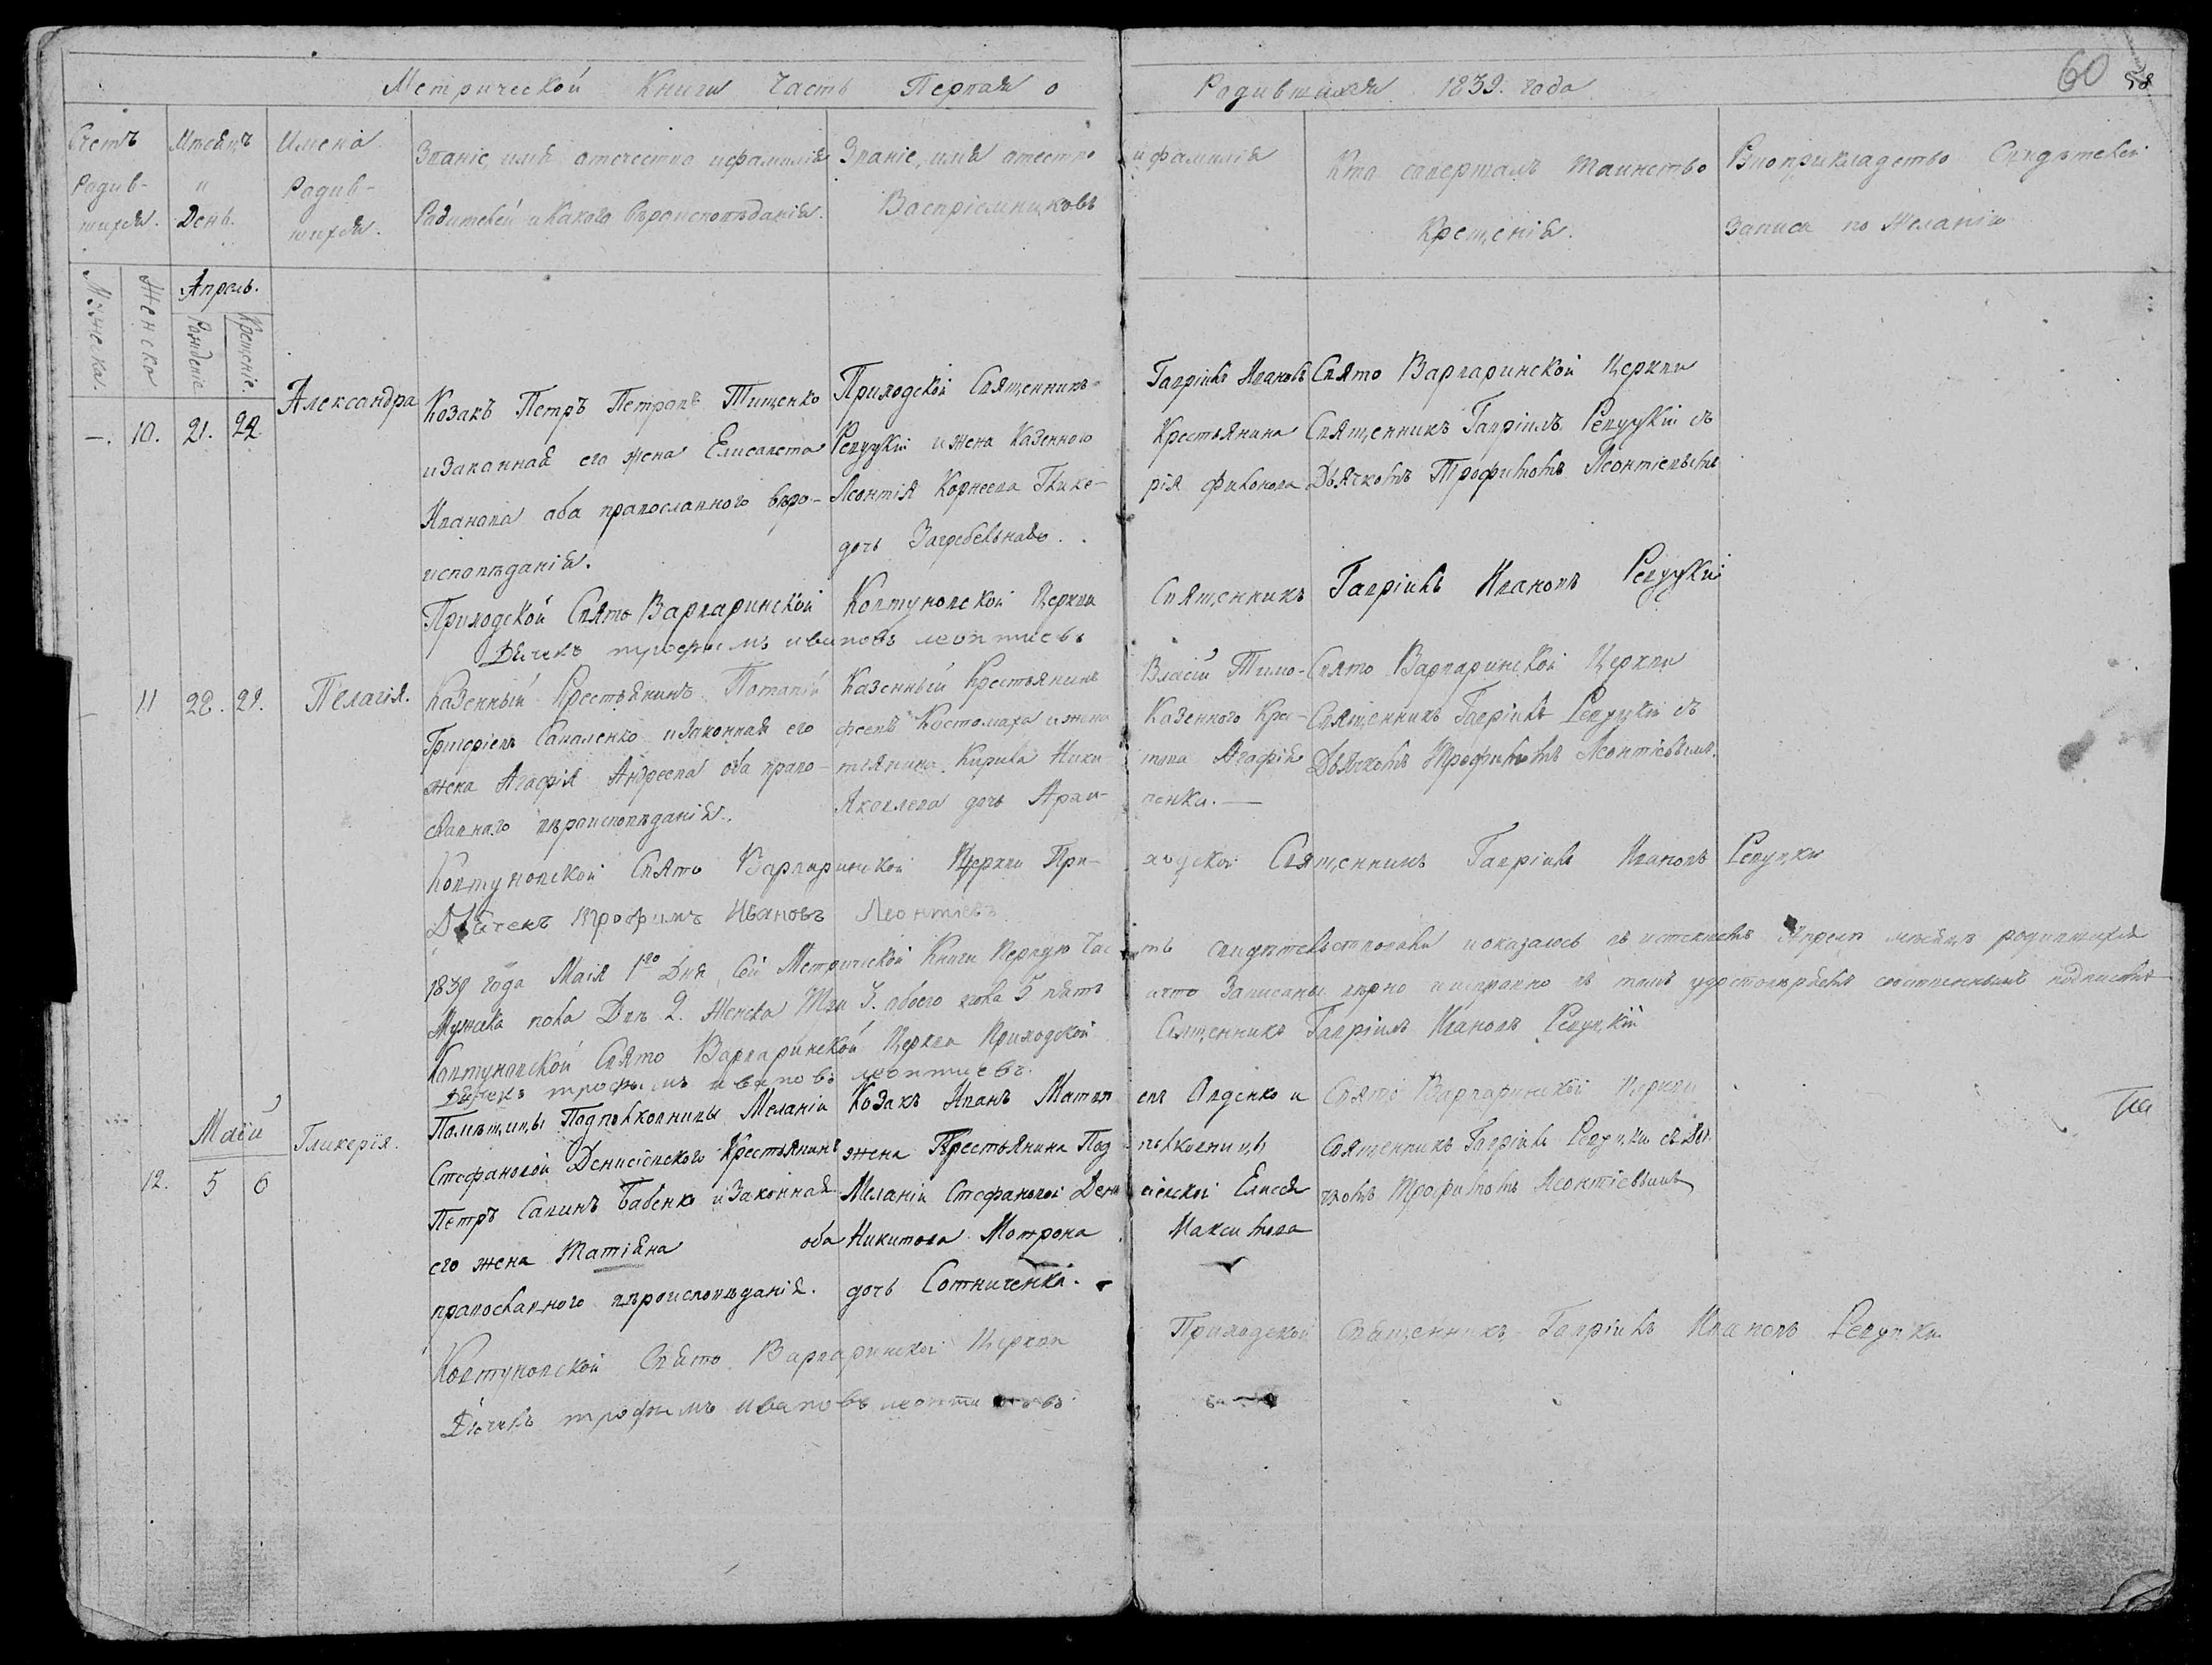 Метрической Книги Часть Первая о Родившихся 1839. года
60 58
Счетъ Родив- шихся.
Мѣсяцъ и День.
Имена Родив- шихся.
Званіе, имя отечество и фамилія
Родителей и какого вѣроисповѣданія.
Званіе, имя отество и фамилія
Воспріемниковъ
Кто совершалъ таинство
Крещенія.
Рукоприкладство Свидѣтелей
Записи по Желанію
Мужеска.
Женска
Апрель.
Рожденіе
Крещеніе.
—. 10. 21. 22.
Александра
Козакъ Петръ Петровъ Тищенко
и законная его жена Елисавета
Иванова оба православного вѣро-
исповѣданія.
Приходской Священникъ Гавріилъ Ивановъ
Репуцкій и жена Казенного Крестьянина
Леонтія Корнеева Глике- рія Филонова
дочь Загребельнаво.
Свято Варваринской Церкви
Священникъ Гавріилъ Репуцкій съ
Дьячкомъ Трофимомъ Леонтіевымъ
Приходской Свято Варваринской Колтуновской Церкви Священникъ Гавріилъ Ивановъ Репуцкій
Дьячекъ трофимъ ивановъ леонтиевъ
11 22. 29.
Пелагія.
Казенный Крестьянинъ Потапій
Григоріевъ Саналенко и законная его
жена Агафія Андреева оба право-
славнаго вѣроисповѣданія.
Казенный Крестьянинъ Власій Тимо-
феевъ Костомаха и жена Казенного Кре-
стіянина Кирила Ники- тина Агафія
Яковлева дочь
Свято Варваринской Церкви
Священникъ Гавріилъ Репуцкій съ
Дьячкомъ Трофимомъ Леонтіевымъ.
Колтуновской Свято Варваринской Церкви При- ходской Священникъ Гавріилъ Ивановъ Репуцки
Дьячекъ Трофимъ Ивановъ Леонтіевъ
1839 года Маія 1го Дня, Сей Метрической Книги Первую Час- ть свидѣтельствовали и оказалось въ истекшемъ Апреле мѣсяцѣ родившихся
Мужеска пола Два 2. Женска Три 3. обоего пола 5 пять и что Записаны вѣрно и исправно въ томъ удостовѣряемъ собственнымъ подписомъ
Колтуновской Свято Варваринской Церкви Приходской Священникъ Гавріилъ Ивановъ Репуцкій
Дьячекъ трофимъ ивановъ леонтиевъ.
Маій
12. 5 6
Гликерія.
Помѣщицы Подполковницы Меланіи
Стефановой Денисіевского Крестьянинъ
Петръ Савинъ Бабенко и законная
его жена Татіяна оба
православного вѣроисповѣданія.
Козакъ Иванъ Матвѣ- евъ и
жена Крестьянина Под- полковницы
Меланіи Стефановой Дени- сіевской Елисея
Никитова Мотрона Максимова
дочь Сотниченка.
Свято Варваринской Церкви
Священникъ Гавріилъ Репуцки съ Дья-
чкомъ Трофимомъ Леонтіевымъ
Колтуновской Свято Варваринской Церкви Приходской Священникъ Гавріилъ Ивановъ Репуцки
Дьячекъ трофимъ ивановъ